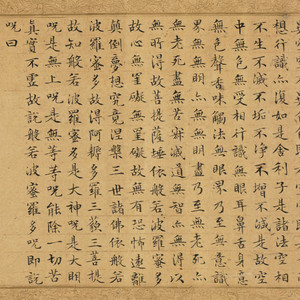 想行識亦復如是舍利子是諸法空相
不生不滅不垢不淨不增不減是故空
中無色無受想行識無眼耳鼻舌身意
無色聲香味觸法無眼界乃至無意識
界無無明亦無無明盡乃至無老死亦
無老死盡無苦集滅道無智亦無得以
無所得故菩提薩埵依般若波羅蜜多
故心無罣礙無罣礙故無有恐怖遠離
顛倒夢想究竟涅槃三世諸佛依般若
波羅蜜多故得阿耨多羅三藐三菩提
故知般若波羅蜜多是大神呪是大明
呪是無上呪是無等等呪能除一切苦
真實不虛故說般若波羅蜜多呪即說
呪曰